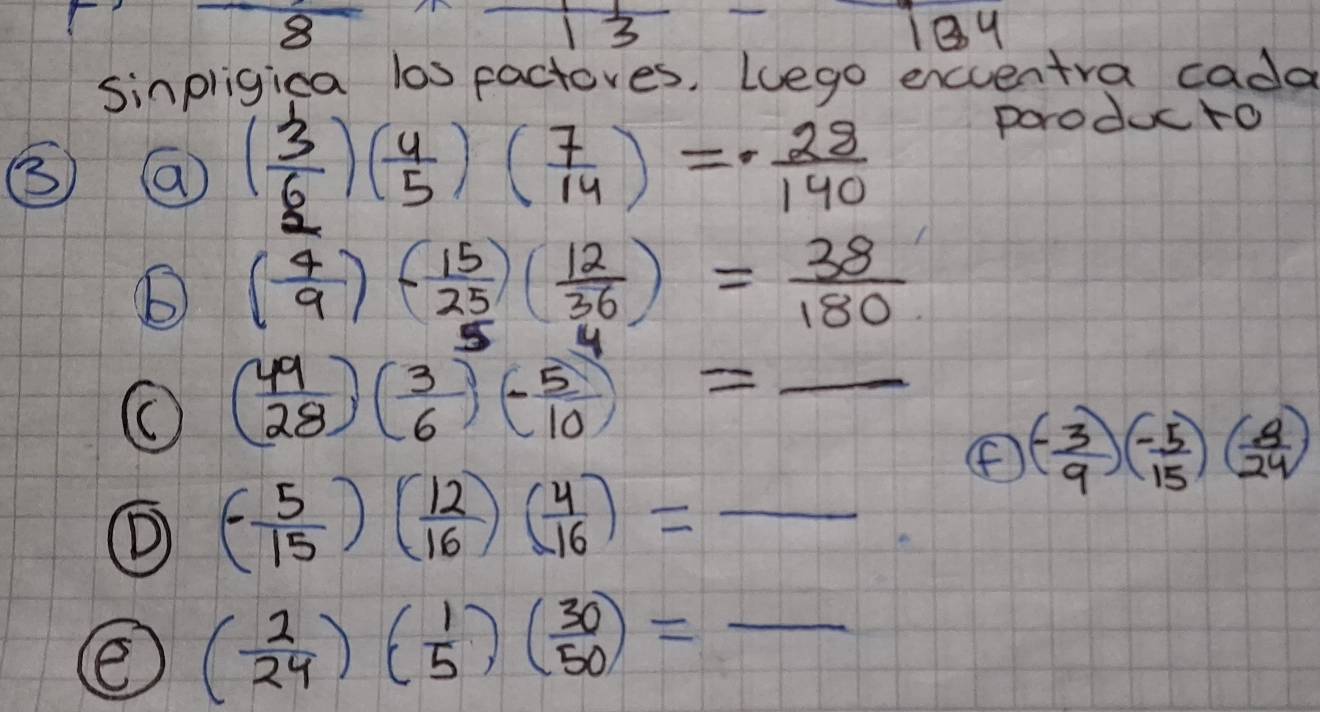 8 13 184
sinpligica los factores. Luego encuentra cada
poroducto
3 a (3/6)(4/5) (7/14) = - 28/140
1 2
b (4/9) (-15/25)(12/36) = 38/180
5 4
c (49/28)(3/6)(-5/10) = —
f (-3/9)(-5/15)(8/24)
D (-5/15) (12/16) (4/16) = —
e (2/24) (1/5) (30/50) = —